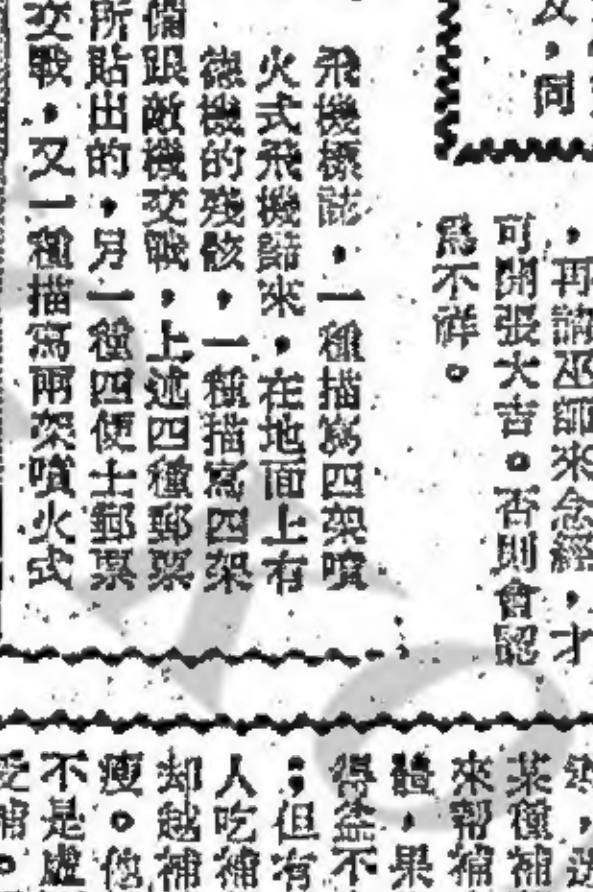 及，同
，再請巫師來念經，才
可開張大吉。否則會認
爲不祥。
飛機標誌，一種描寫四架噴
火式飛機歸來，在地面上有
德機的殘骸，一種描寫四架
備跟敵機交戰，上述四種郵票
所貼出的，另一種四便士郵票
交戰，又一種描寫兩架噴火式
某種補
來帮補
體，果
得益不
；但有
人吃補
却越補
瘦。他
不是虛